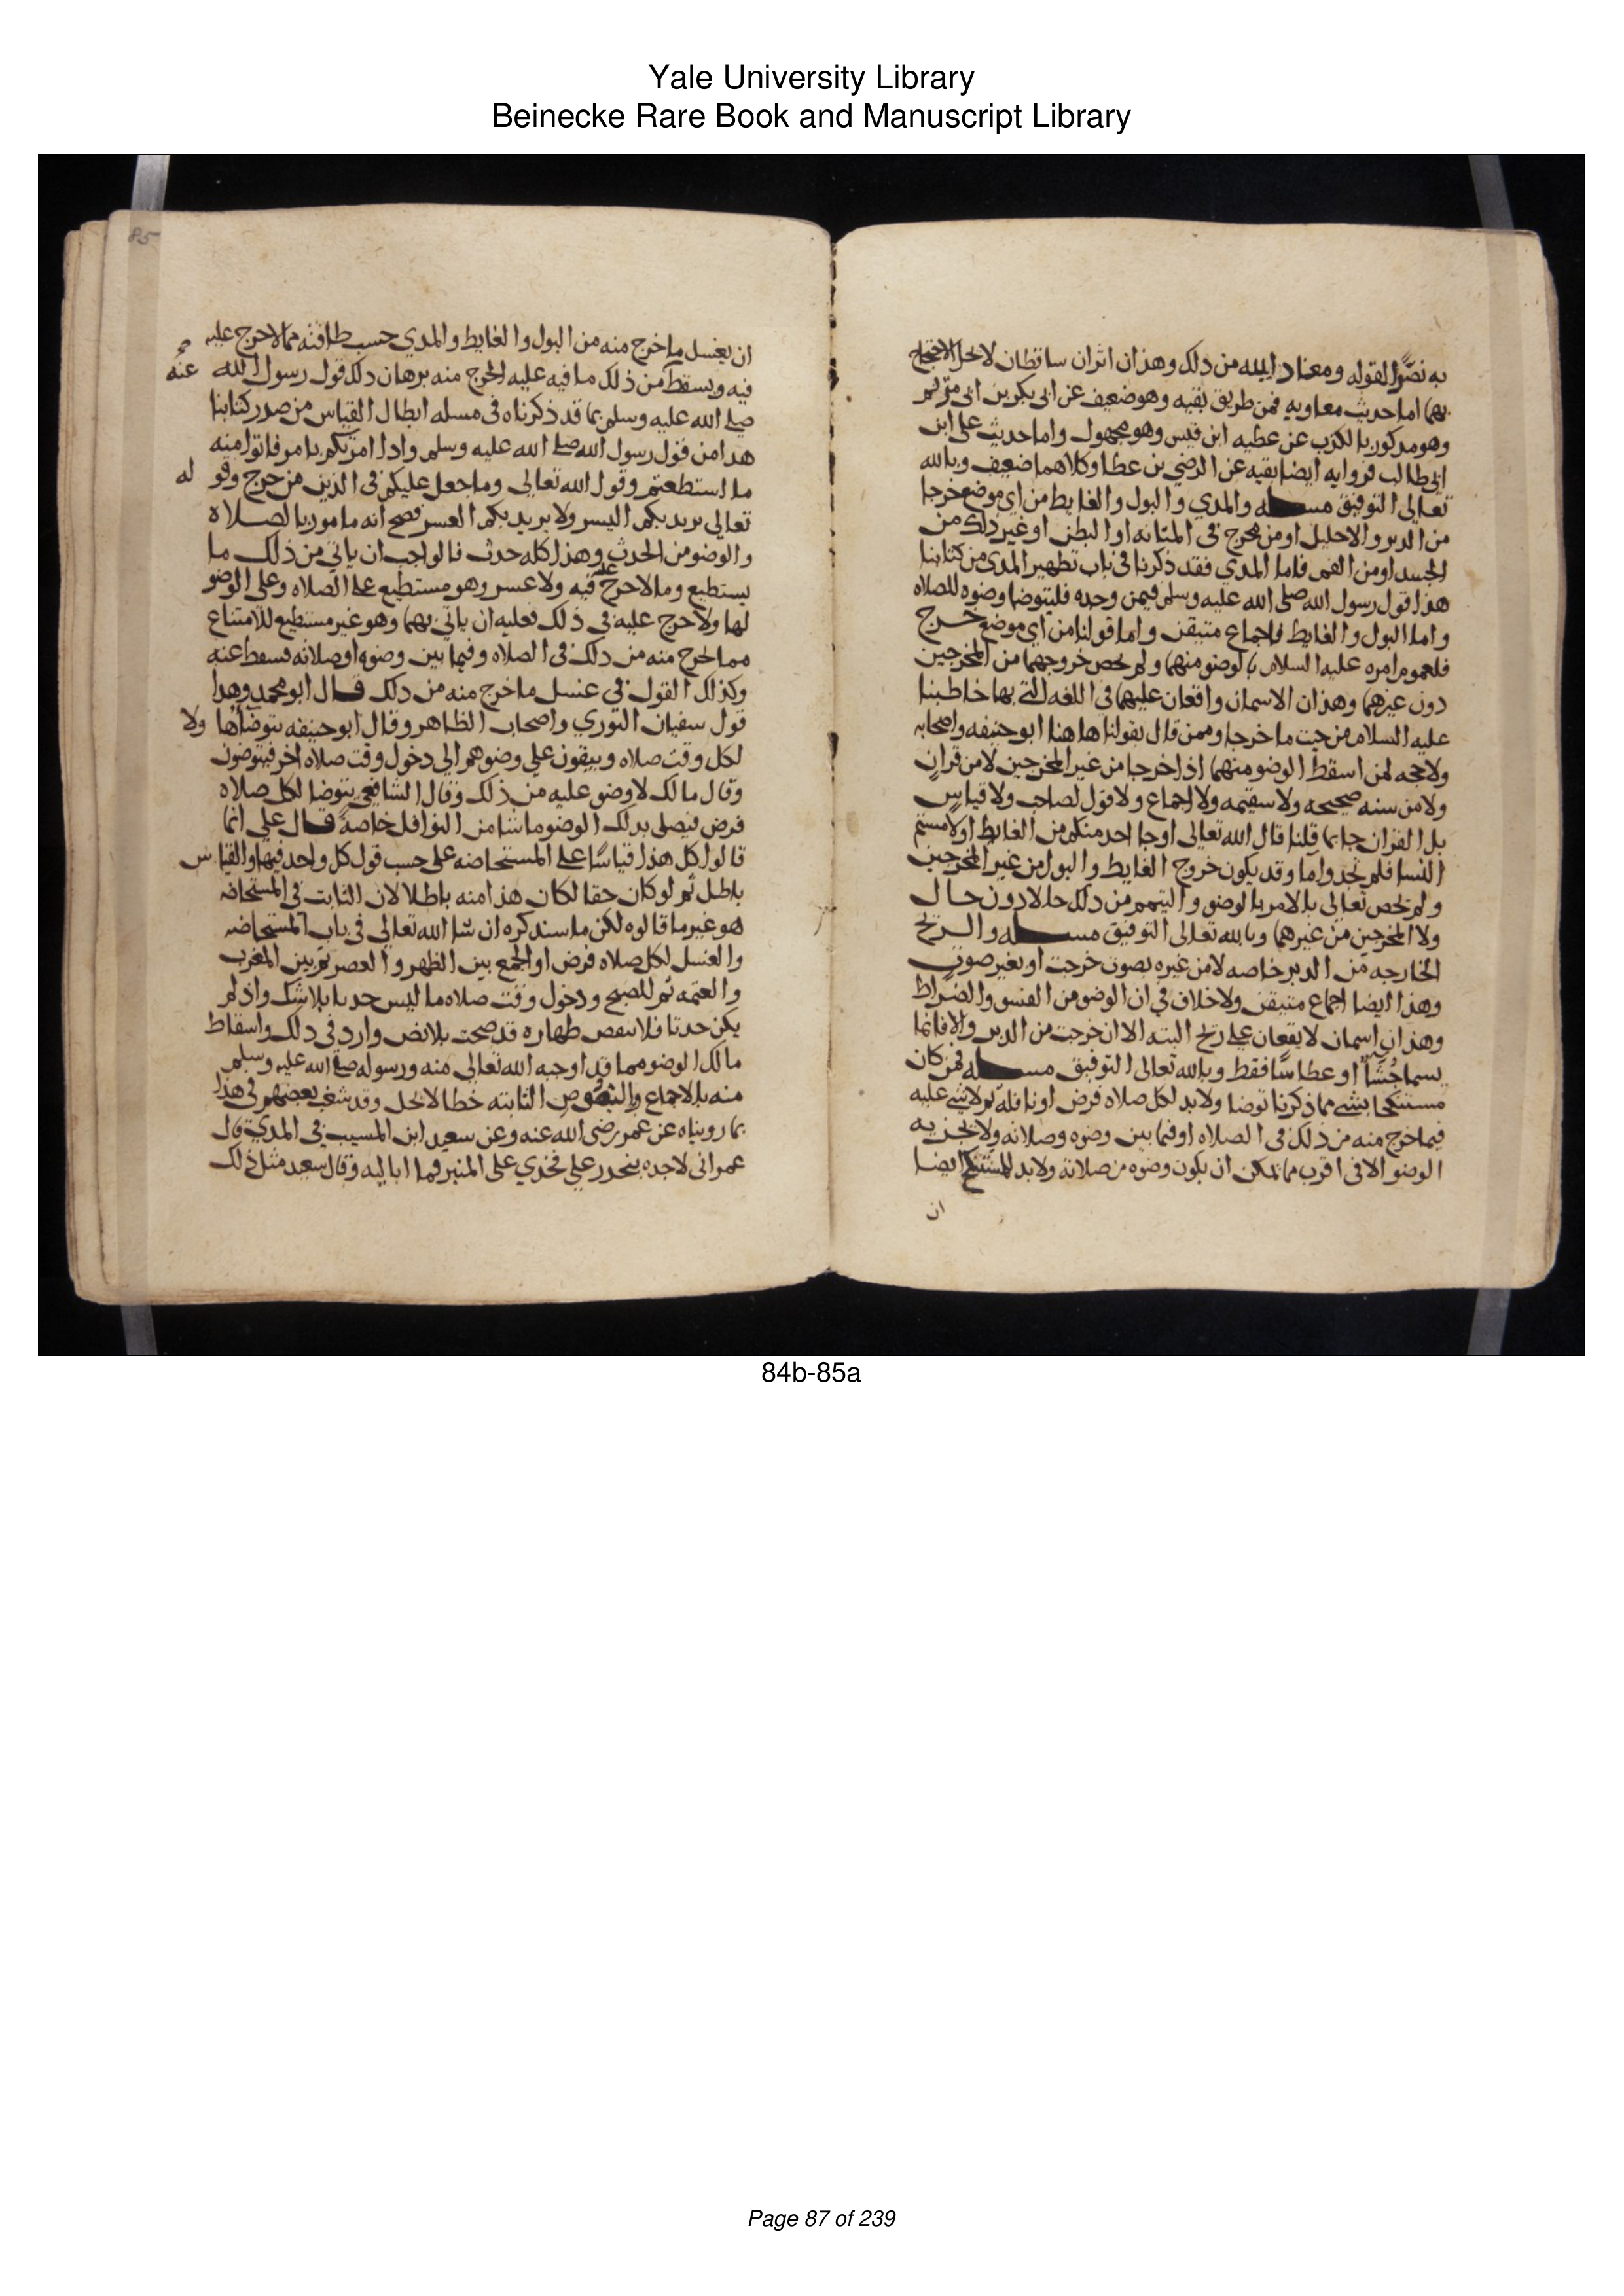 Yale University Library
Beinecke Rare Book and Manuscript Library
به نصًّا لقوله ومعناد الله من دلك وهذان اثران ساقطان لا يحل الاحتجاج
بهما اما حديث معاويه فمن طريق بقيه وهو ضعيف عن ابى بكر بن ابى مريم
وهو مدكور بالكذب عن عطيه ابن قيس وهو مجهول واما حديث على ابن
ابى طالب فروايه ايضا بقيه عن الوضين بن عطا وكلاهما ضعيف وبالله
تعالى التوفيق مسله والمدي والبول والغايط من اي موضع خرجا
من الدبر والاحليل او من مخرج في المثانه او البطن او غير دلك من
الجسد او من الفم فاما المدي فقد ذكرنا في باب تطهير المدي من كتابنا
هذا قول رسول الله صلى الله عليه وسلم فيمن وجده فليتوضا وضوه للصلاه
واما البول والغايط فاجماع متيقن واما قولنا من اي موضع خرج
فلعموم امره عليه السلام بالوضو منهما ولم يخص خروجهما من المخرجين
دون غيرهما وهذان الاسمان واقعان عليهما في اللغه التي بها خاطبنا
عليه السلام من حيث ما خرجا وممن قال بقولنا هاهنا ابو حنيفه واصحابه
ولا حجه لمن اسقط الوضو منهما اذا خرجا من غير المخرجين لا من قران
ولا من سنه صحيحه ولا سقيمه ولا اجماع ولا قول لصاحب ولا قياس
بل القران جا بما قلنا قال الله تعالى او جا احد منكم من الغايط او لامستم
النسا فلم تجدوا ما وقد يكون خروج الغايط والبول من غير المخرجين
ولم يخص تعالى بالامر بالوضو والتيمم من دلك حالا دون حال
ولا المخرجين من غيرهما وبالله تعالى التوفيق مسله والريح
الخارجه من الدبر خاصه لا من غيره بصوت خرجت او بغير صوت
وهذا ايضا اجماع متيقن ولا خلاف في ان الوضو من الفسو والضراط
وهذان اسمان لا يقعان على ريح البته الا ان خرجت من الدبر والا فانما
يسما جُشَاً او عطاسًا فقط وبالله تعالى التوفيق مسله فمن كان
مستنكحا بشي مما ذكرنا توضا ولا بد لكل صلاه فرض او نافله ثم لا شي عليه
فيما خرج منه من دلك في الصلاه او فيما بين وضوه وصلاته ولا يجزيه
الوضو الا في اقرب ما يمكن ان يكون وضوه من صلاته ولا بد للمستنكح ايضا
ان
85
ان يغسل ما خرج منه من البول والغايط والمدي حسب طاقته مما لا حرج عليه
فيه ويسقط من ذلك ما فيه عليه الحرج منه برهان دلك قول رسول الله
عنه
صلى الله عليه وسلم بما قد ذكرناه في مسله ابطال القياس من صدر كتابنا
هدا من قول رسول الله صلى الله عليه وسلم وادا امرتكم بامر فاتوا منه
ما استطعتم وقول الله تعالى وما جعل عليكم في الدين من حرج وقو له
تعالى يريد بكم اليسر ولا يريد بكم العسر فصح انه مامور بالصلاه
والوضو من الحدث وهذا كله حدث فالواجب ان ياتي من ذلك ما
يستطيع وما لا حرج عليه فيه ولا عسر وهو مستطيع على الصلاه وعلى الوضو
لها ولا حرج عليه في ذلك فعليه ان ياتي بهما وهو غير مستطيع للامتناع
مما يخرج منه من دلك في الصلاه وفيما بين وضوه وصلاته فسقط عنه
وكذلك القول في غسل ما خرج منه من دلك قال ابو محمد وهدا
قول سفيان الثوري واصحاب الظاهر وقال ابو حنيفه يتوضا هاولا
لكل وقت صلاه ويبقون على وضوهم الى دخول وقت صلاه اخر فيتوضون
وقال مالك لا وضو عليه من ذلك وقال الشافعي يتوضا لكل صلاه
فرض فيصلى بدلك الوضو ما شا من النوافل خاصة قال على انما
قالوا كل هذا قياسًا على المستحاضه على حسب قول كل واحد فيها والقياس
باطل ثم لو كان حقا لكان هذا منه باطلا لان الثابت في المستحاضه
هو غير ما قالوه لكن ما سندكره ان شا الله تعالى في باب المستحاضه
والغسل لكل صلاه فرض او الجمع بين الظهر والعصر ثم بين المغرب
والعتمه ثم للصبح ودخول وقت صلاه ما ليس حدثا بلا شك واذ لم
يكن حدثا فلا تنقض طهاره قد صحت بلا نص وارد في دلك واسقاط
مالك الوضو مما قد اوجبه الله تعالى منه ورسوله صلى الله عليه وسلم
منه بالاجماع وبالنصوص الثابته خطا لا يحل وقد شغب بعضهم في هذا
بما رويناه عن عمر رضى الله عنه وعن سعيد ابن المسيب في المدي قال
عمر انى لاجده ينحدر على فخدي على المنبر فما اباليه وقال سعيد مثل ذلك
84b-85a
Page 87 of 239